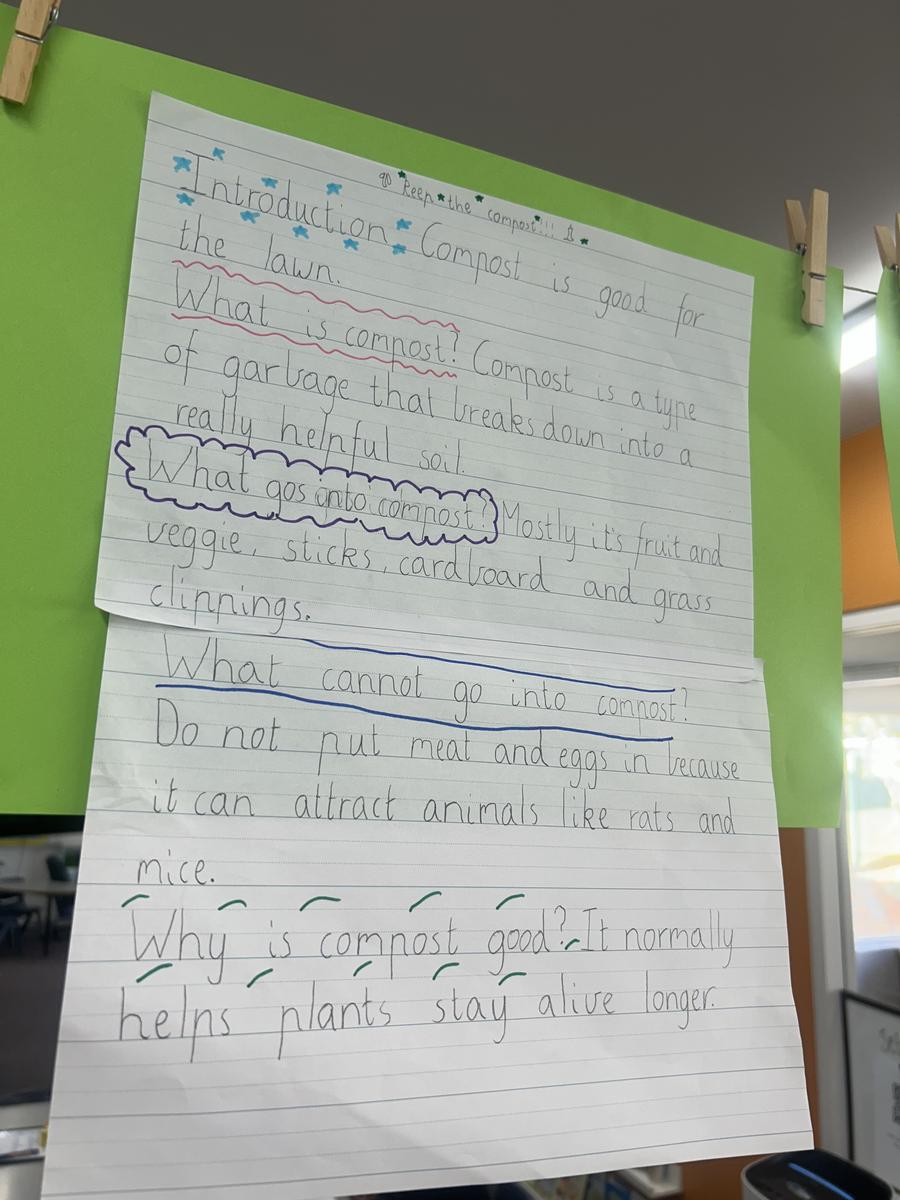 Keep the compost!!!
Introduction: Compost is good for
the lawn.
What is compost? Compost is a type
of garbage that breaks down into a
really helpful soil.
What gos into compost? Mostly it's fruit and
veggie, sticks, cardboard and grass
clippings.
What cannot go into compost?
Do not put meat and eggs in because
it can attract animals like rats and
mice.
Why is compost good? It normally
helps plants stay alive longer.